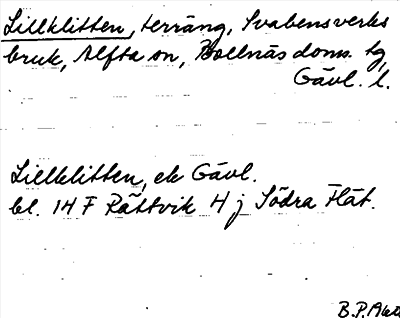 Lillklitten, terräng, Svabensverks
bruk, Alfta sn, Bollnäs doms. tg,
Gävl. l.
Lillklitten, ek Gävl.
bl. 14 F Rättvik 4 j Södra Flät.
B.P.